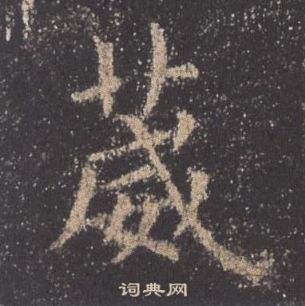 葳
词典网